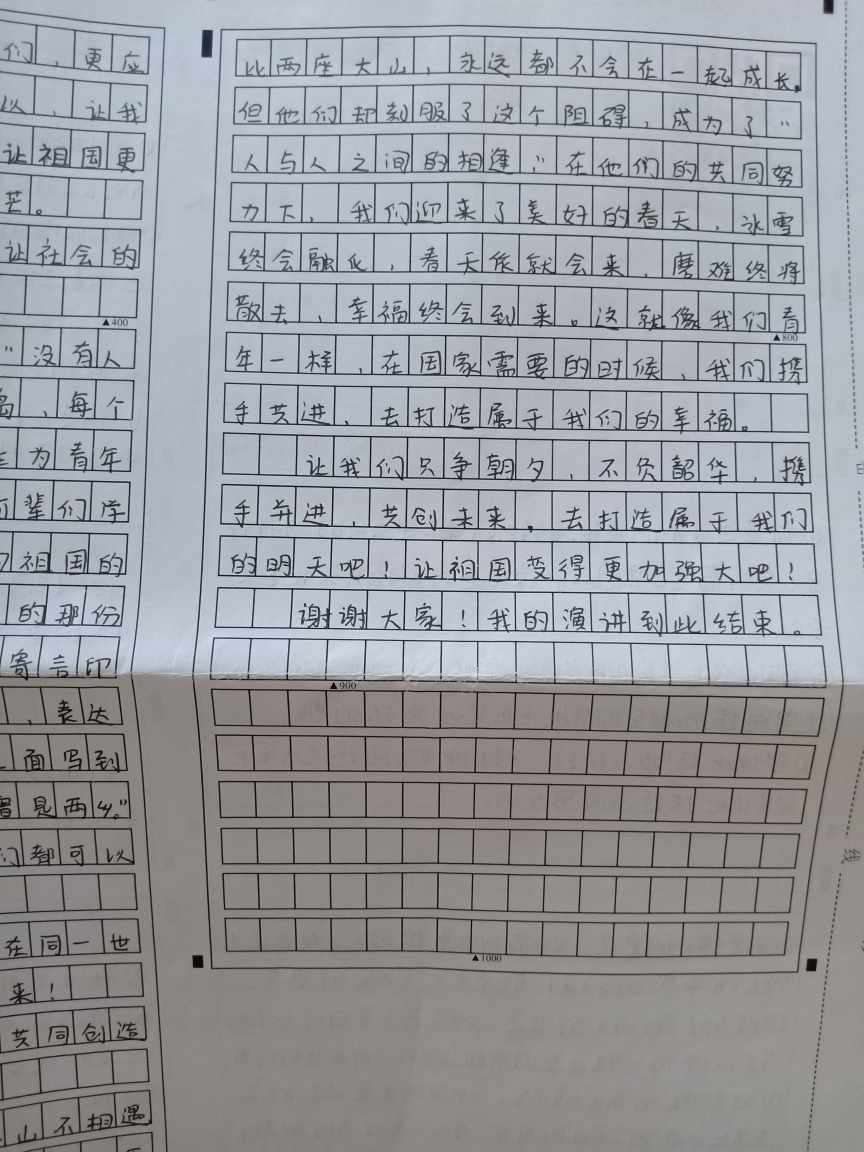 们，更应
以，让我
让祖国更
芒。
让社会的
▲400
"没有人
岛，每个
为青年
辈们学
祖国的
的那份
寄言印
，表达
面写到
是两乡。"
们都可以
在同一世
来！
共同创造
山不相遇
比两座大山，永远都不会在一起成长。
但他们却刻服了这个阻碍，成为了"
人与人之间的相逢"。在他们的共同努
力下，我们迎来了美好的春天，冰雪
终会融化，春天依就会来，磨难终将
散去，幸福终会到来。这就像我们青
▲800
年一样，在国家需要的时候，我们携
手共进，去打造属于我们的幸福。
让我们只争朝夕，不负韶华，携
手并进，共创未来，去打造属于我们
的明天吧！让祖国变得更加强大吧！
谢谢大家！我的演讲到此结束。
▲900
▲1000
线